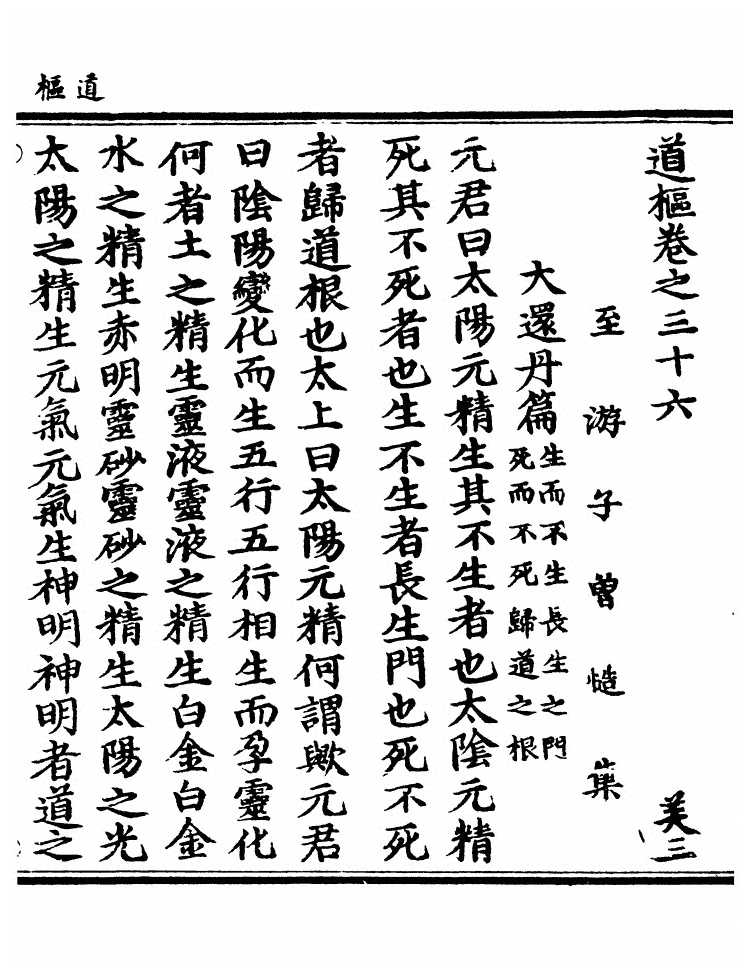 道樞
道樞卷之三十六 美三
至游子曾慥集
大還丹篇
生而不生長生之門
死而不死歸道之根
元君曰太陽元精生其不生者也太陰元精
死其不死者也生不生者長生門也死不死
者歸道根也太上曰太陽元精何謂歟元君
曰陰陽變化而生五行五行相生而孕靈化
何者土之精生靈液靈液之精生白金白金
水之精生赤明靈砂靈砂之精生太陽之光
太陽之精生元氣元氣生神明神明者道之